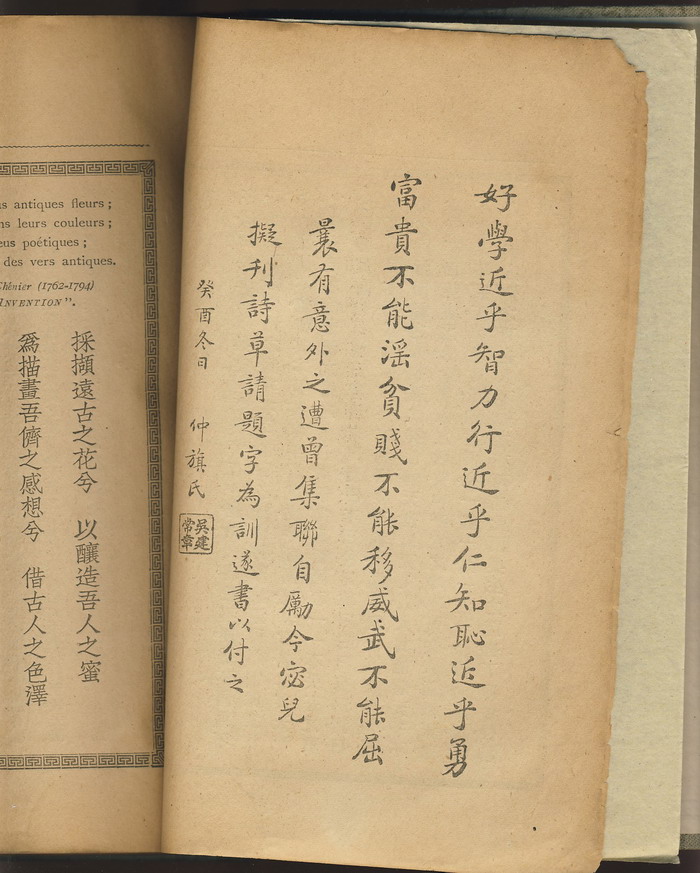 好學近乎智力行近乎仁知恥近乎勇
富貴不能滛貧賤不能移威武不能屈
曩有意外之遭曾集聯自勵今宓兒
擬刋詩草請題字為訓遂書以付之
癸酉冬日 仲旗氏
吳建常章
s antiques fleurs;
ns leurs couleurs;
eus poétiques;
des vers antiques.
Chénier (1762-1794)
INVENTION".
採擷遠古之花兮 以釀造吾人之蜜
爲描畫吾儕之感想兮 借古人之色澤